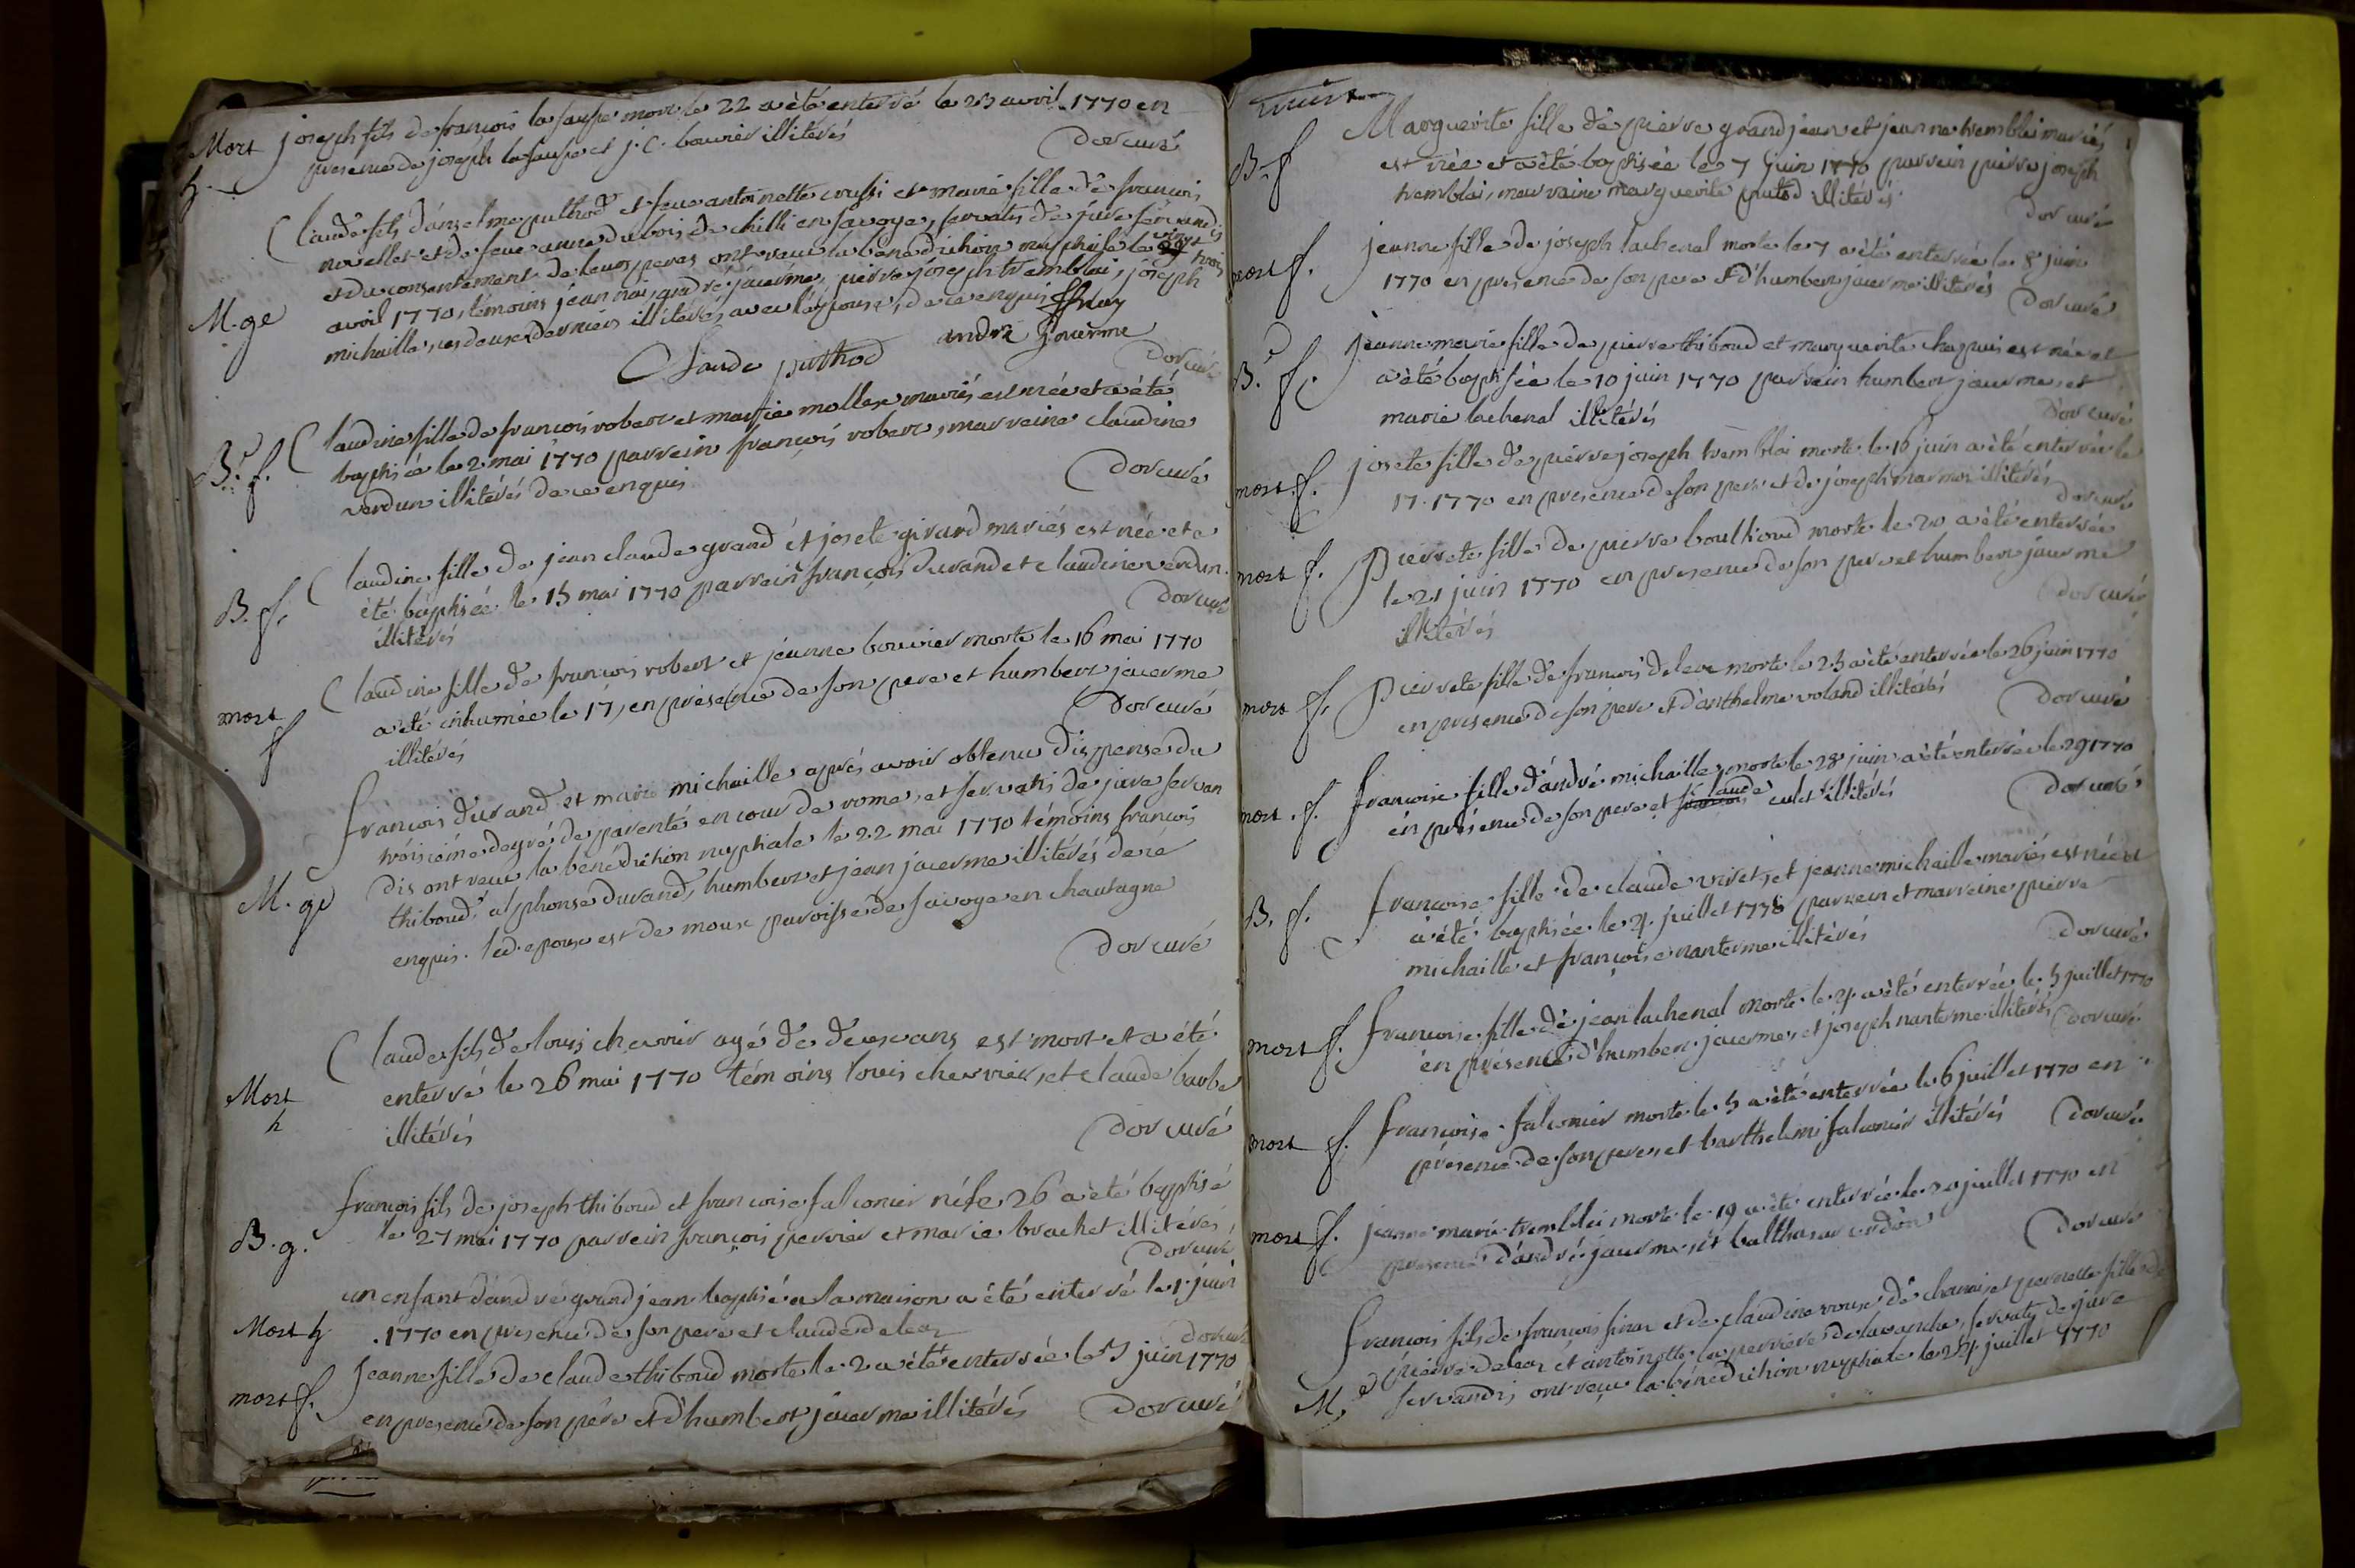 Mort joseph fils de françois la sauge mort le 22 a èté enterré le 23 avril 1770 en
h. presence de joseph la sause et j. c. bouvier illitérés
dor curé
Claude fils d'anselme puthod et feue antoinette et marie fille de françois
nouellet et de feue anne dubois de chilli en savoye, servatis de jure servandis
et du consentement de leurs peres ont reçu la bénédiction nuptiale le vingt trois
M.ge avril 1770, témoins jean nai, andré jacerme, pierre joseph tremblai, joseph
michaille, ces deux derniers illitérés avec l'épouse, de ce enquis
Claude puthod andré Jouerme
dor curé
B. f. Claudine fille de françois robert et marie mollex mariés est née et a été
baptisée le 2 mai 1770 parrein françois robert, marreine claudine
verdun illitérés de ce enquis
dor curé
B. f. Claudine fille de jean claude grand et josete girard mariés est née et a
été baptisée le 15 mai 1770 parrein françois durand et claudine verdun
illitérés
dor curé
mort f Claudine fille de françois robert et jeanne bouvier morte le 16 mai 1770
a été inhumée le 17, en présence de son pere et humbert jacerme
illitérés
dor curé
françois durand et marie michaille après avoir obtenu dispense du
troisième degré de parenté en cour de rome, et servatis de jure servan
M. ge dis ont reçu la bénédiction nuptiale le 22 mai 1770 témoins françois
thiboud, alphonse durand, humbert et jean jacerme illitérés de ce
enquis. led. epoux est de moux paroisse de savoye en chautagne
dor curé
Claude fils de louis chevrier agé de deux ans est mort et a été
Mort h enterré le 26 mai 1770 témoins louis chevrier, et claude barbe
illitérés
dor curé
françois fils de joseph thiboud et françoise falconier né le 26 a èté baptisé
B. g. le 27 mai 1770 parrein françois perrier et marie brachet illitérés,
dor curé
un enfant d'andré grandjean baptisé a la maison a été enterré le 1 juin
Mort h .1770 en presence de son pere et claude deleaz
dor curé
Jeanne fille de claude thiboud morte le 2 a été enterrée le 3 juin 1770
mort f. en presence de son père et d'humbert jacerme illitérés dor curé
Marguerite fille de pierre grandjean et jeanne tremblai mariés
B. f est née et a èté baptisée le 7 juin 1770 parrein pierre joseph
tremblai, marraine marguerite putod illitérés
dor curé
mort f. jeanne fille de joseph lachenal morte le 7 a été enterrée le 8 juin
1770 en presence de son pere et d'humbert jacerme illitérés
dor curé
jeanne marie fille de pierre thiboud et marguerite chapuis est née et
B. f. a èté baptisée le 10 juin 1770 parrein humbert jacerme, et
marie lachenal illitérés
dor curé
mort. f. josete fille de pierre joseph tremblai morte le 16 juin a èté enterrée le
17. 1770 en presence de son pere et de joseph marmox illitérés
dor curé
mort f. Pierrete fille de pierre boullioud morte le 20 a èté enterrée
le 21 juin 1770 en presence de son pere et humbert jacerme
illitérés
dor curé
mort f. Pierrete fille de françois deleaz morte le 25 a èté enterrée le 26 juin 1770
en presence de son pere et d'anthelme voland illitérés
dor curé
mort. f. françoise fille d'andré michaille, morte le 28 juin a èté enterrée le 29 1770
en présence de son pere et claude culet illitérés
dor curé
B. f. françoise fille de claude viret, et jeanne michaille mariés est née et
a été baptisée le 4. juillet 1770 parrein et marreine pierre
michaille et françoise nanterme illitérés
dor curé
mort f. françoise fille de jean lachenal morte le 4 a èté enterrée le 5 juillet 1770
en présence d'humbert jacerme, et joseph nanterme illitérés dor curé
mort f. françoise falconier morte le 5 a èté enterrée le 6 juillet 1770 en
présence de son pere, et barthelemi falconier illitérés dor curé
mort f. jeanne marie tremblai morte le 19 a été enterrée le 20 juillet 1770 en
presence d'andré jacerme, et balthasar verdun
dor curé
françois fils de françois et de claudine roux de chanai et pernette fille de
pierre deleaz et antoinette la perrière de lavanche, servatis de jure
M. servandis ont reçu la bénédiction nuptiale le 24 juillet 1770